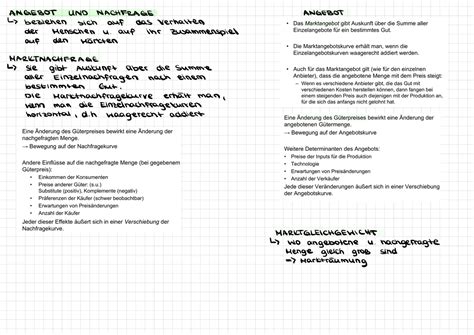 ANGEBOT UND NACHFRAGE
↳ beziehen sich auf das Verhalten
der Menschen u. auf ihr Zusammenspiel
auf den Märkten
MARKTNACHFRAGE
↳ Sie gibt Auskunft über die Summe
aller Einzelnachfragen nach einem
bestimmten Gut.
Die Marktnachfragekurve erhält man,
wenn man die Einzelnachfragekurven
horizontal, d.h waagerecht addiert
Eine Änderung des Güterpreises bewirkt eine Änderung der
nachgefragten Menge.
→ Bewegung auf der Nachfragekurve
Andere Einflüsse auf die nachgefragte Menge (bei gegebenem
Güterpreis):
• Einkommen der Konsumenten
• Preise anderer Güter: (s.u.)
Substitute (positiv), Komplemente (negativ)
• Präferenzen der Käufer (schwer beobachtbar)
• Erwartungen von Preisänderungen
• Anzahl der Käufer
Jeder dieser Effekte äußert sich in einer Verschiebung der
Nachfragekurve.
ANGEBOT
• Das Marktangebot gibt Auskunft über die Summe aller
Einzelangebote für ein bestimmtes Gut.
• Die Marktangebotskurve erhält man, wenn die
Einzelangebotskurven waagerecht addiert werden.
• Auch für das Marktangebot gilt (wie für den einzelnen
Anbieter), dass die angebotene Menge mit dem Preis steigt:
– Wenn es verschiedene Anbieter gibt, die das Gut mit
verschiedenen Kosten herstellen können, dann fangen bei
einem steigenden Preis auch diejenigen mit der Produktion an,
für die sich das anfangs nicht gelohnt hat.
Eine Änderung des Güterpreises bewirkt eine Änderung der
angebotenen Gütermenge.
→ Bewegung auf der Angebotskurve
Weitere Determinanten des Angebots:
• Preise der Inputs für die Produktion
• Technologie
• Erwartungen von Preisänderungen
• Anzahl der Verkäufer
Jede dieser Veränderungen äußert sich in einer Verschiebung
der Angebotskurve.
MARKTGLEICHGEWICHT
↳ wo angebotene u. nachgefragte
Menge gleich groß sind
=> Markträumung